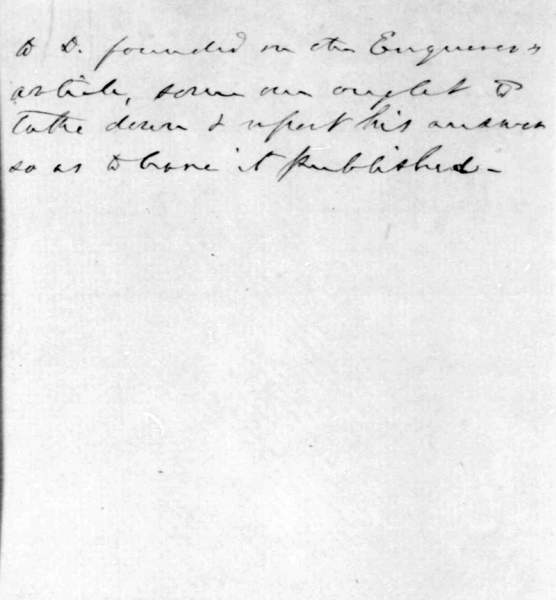 to D. founded on the Enquirer's
article, some one ought to
take down & report his answer
so as to have it published –